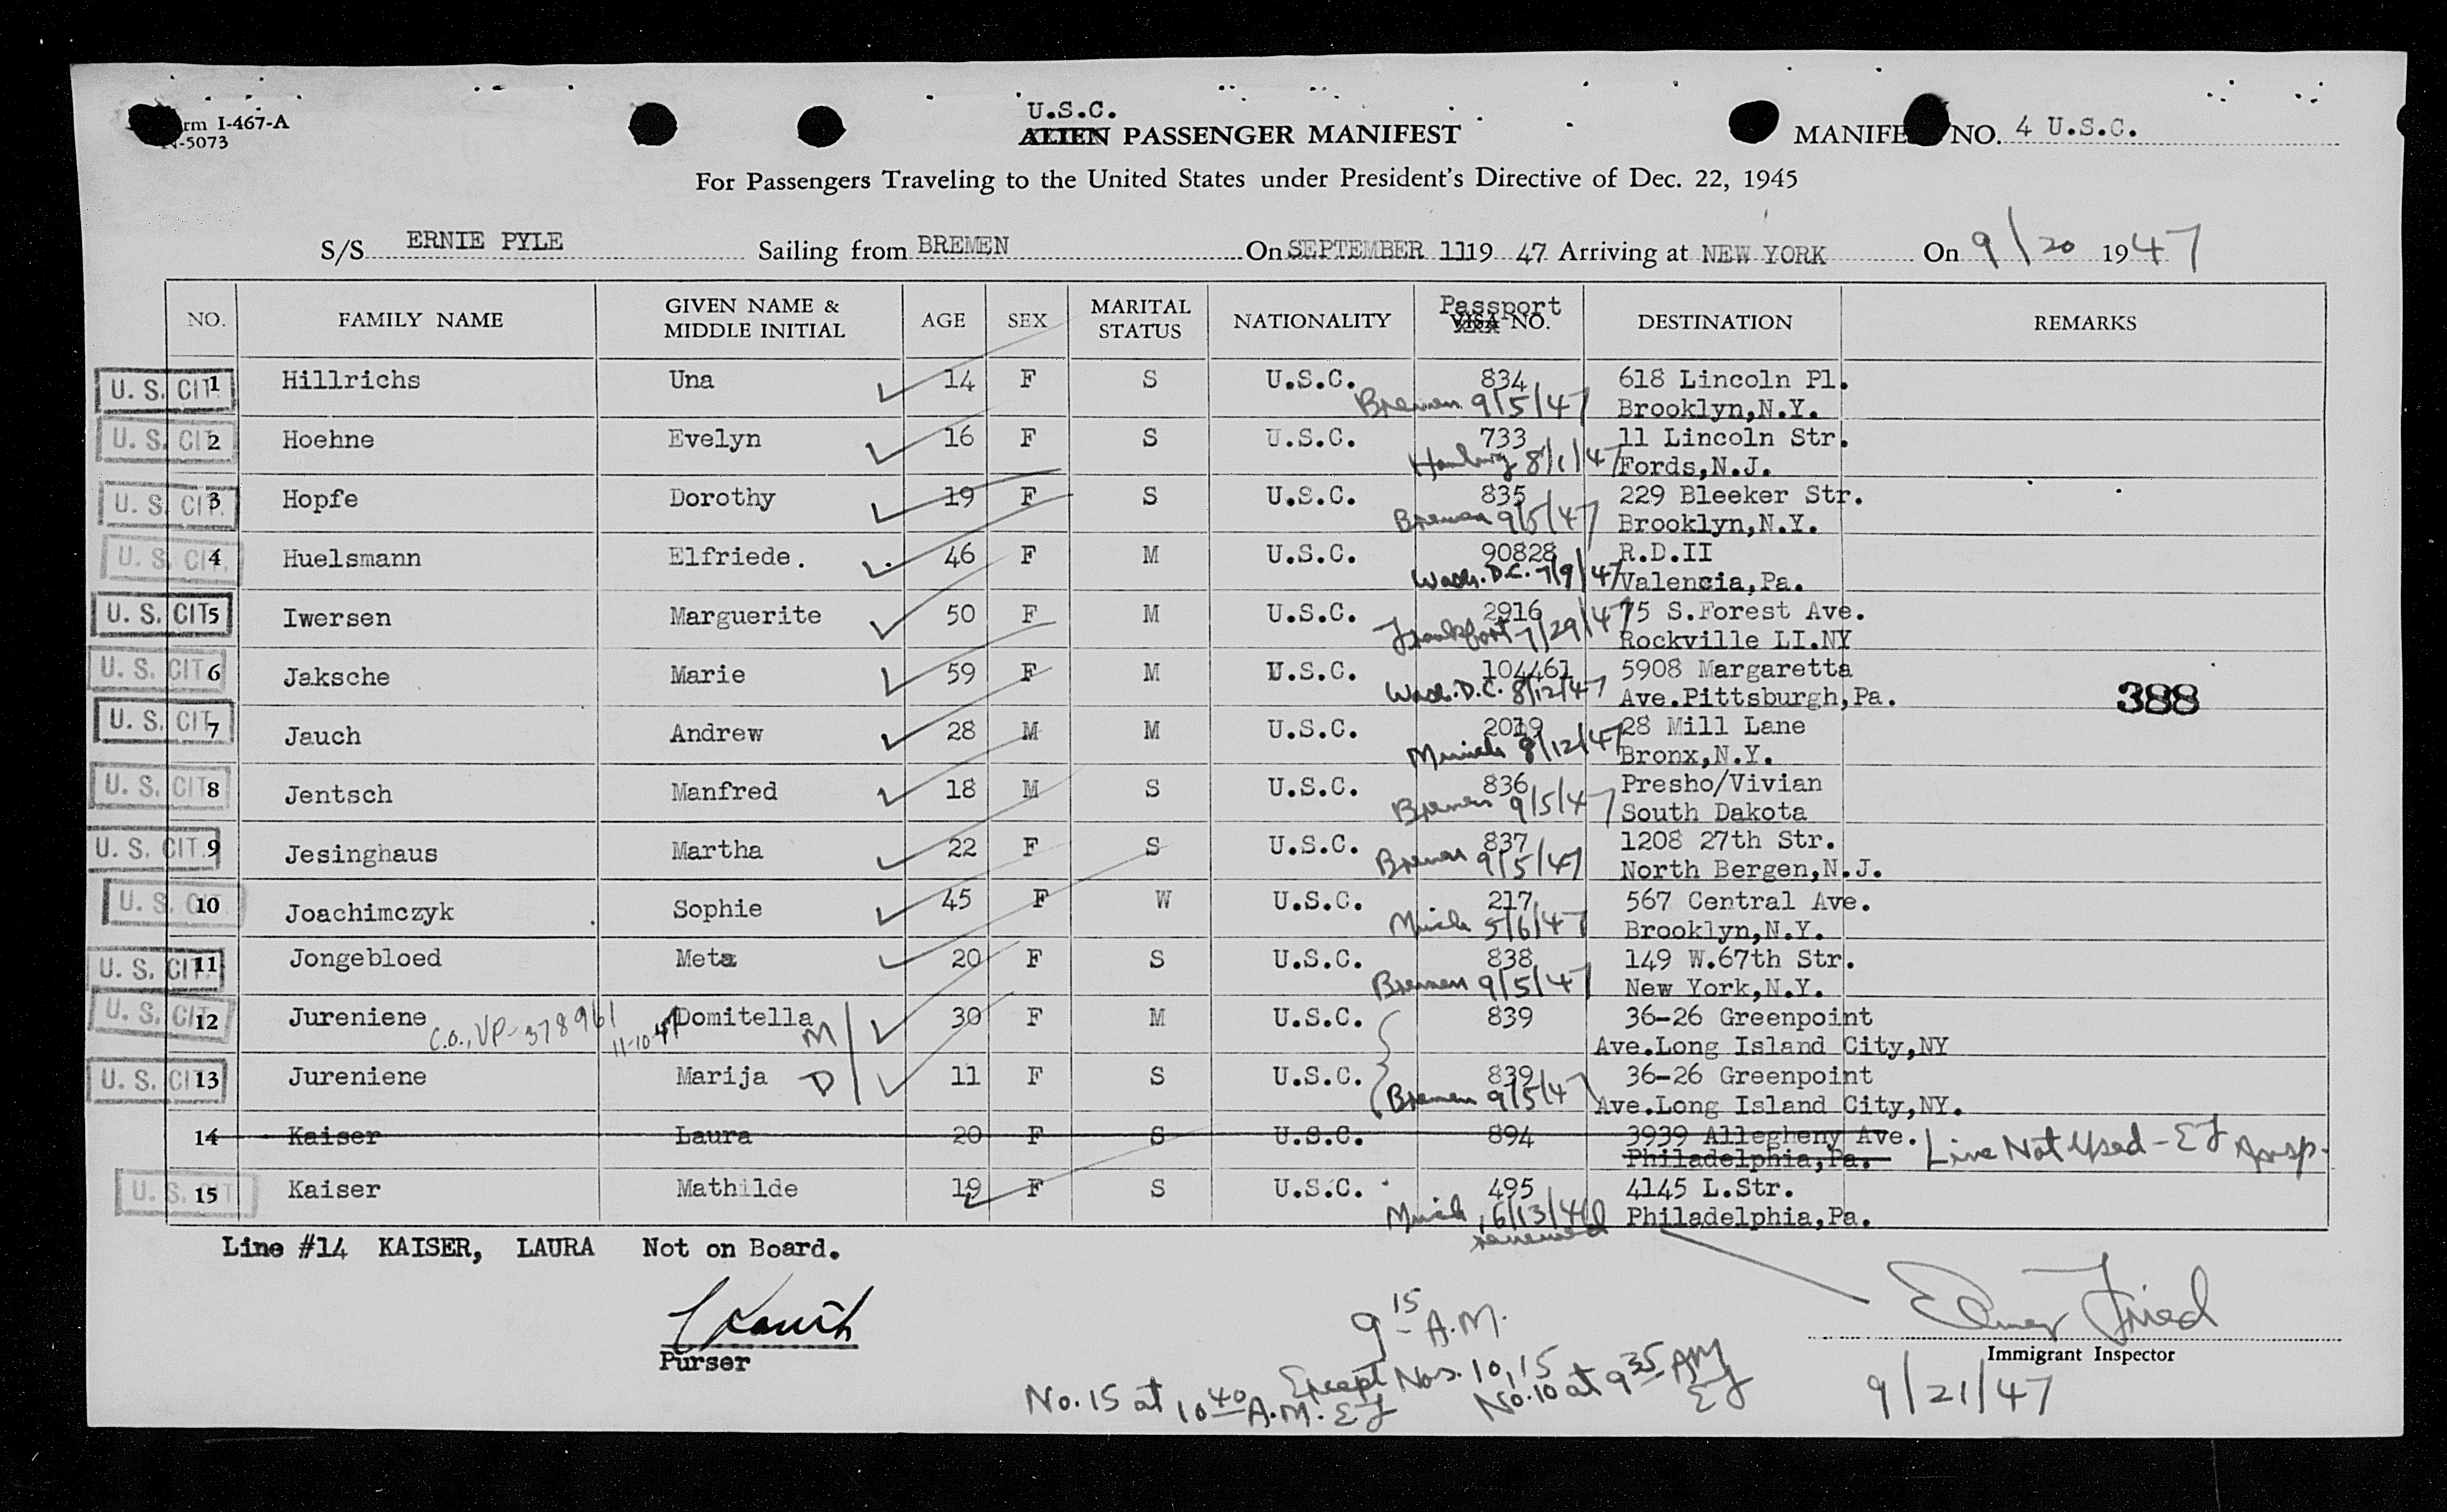 Form I-467-A
N-5073
U.S.C.
ALIEN PASSENGER MANIFEST
MANIFE NO. 4 U.S.C.
For Passengers Traveling to the United States under President's Directive of Dec. 22, 1945
S/S ERNIE PYLE Sailing from BREMEN On SEPTEMBER 11 19 47 Arriving at NEW YORK On 9/20 1947
NO. FAMILY NAME GIVEN NAME & MIDDLE INITIAL AGE SEX MARITAL STATUS NATIONALITY Passport VISA NO. DESTINATION REMARKS
U. S. CIT. 1 Hillrichs Una 14 F S U.S.C. 834 618 Lincoln Pl.
Bremen 9/5/47 Brooklyn,N.Y.
U. S. CIT. 2 Hoehne Evelyn 16 F S U.S.C. 733 11 Lincoln Str.
Hamburg 8/1/47 Fords,N.J.
U. S. CIT. 3 Hopfe Dorothy 19 F S U.S.C. 835 229 Bleeker Str.
Bremen 9/5/47 Brooklyn,N.Y.
U. S. CIT. 4 Huelsmann Elfriede. 46 F M U.S.C. 90828 R.D.II
Wash. D.C. 7/9/47 Valencia,Pa.
U. S. CIT. 5 Iwersen Marguerite 50 F M U.S.C. 2916 75 S.Forest Ave.
Frankfort 7/29/47 Rockville LI.NY
U. S. CIT. 6 Jaksche Marie 59 F M U.S.C. 104461 5908 Margaretta
Wash. D.C. 8/12/47 Ave.Pittsburgh,Pa.
388
U. S. CIT. 7 Jauch Andrew 28 M M U.S.C. 2019 28 Mill Lane
Munich 8/12/47 Bronx,N.Y.
U. S. CIT. 8 Jentsch Manfred 18 M S U.S.C. 836 Presho/Vivian
Bremen 9/5/47 South Dakota
U. S. CIT. 9 Jesinghaus Martha 22 F S U.S.C. 837 1208 27th Str.
Bremen 9/5/47 North Bergen,N.J.
U. S. CIT. 10 Joachimczyk Sophie 45 F W U.S.C. 217 567 Central Ave.
Munich 5/6/47 Brooklyn,N.Y.
U. S. CIT. 11 Jongebloed Meta 20 F S U.S.C. 838 149 W.67th Str.
Bremen 9/5/47 New York,N.Y.
U. S. CIT. 12 Jureniene Domitella M 30 F M U.S.C. 839 36-26 Greenpoint
C.O., VP-378961 11-10-47 Ave.Long Island City,NY
U. S. CIT. 13 Jureniene Marija D 11 F S U.S.C. 839 36-26 Greenpoint
Bremen 9/5/47 Ave.Long Island City,NY.
14 Kaiser Laura 20 F S U.S.C. 894 3939 Allegheny Ave.
Philadelphia,Pa. Line Not Used - EF Insp.
U. S. CIT 15 Kaiser Mathilde 19 F S U.S.C. 495 4145 L.Str.
Munich, 6/13/46 Philadelphia,Pa.
renewed
Line #14 KAISER, LAURA Not on Board.
Purser
9 15 A.M.
Except Nos. 10, 15
No. 15 at 10 40 A.M. EF
No. 10 at 9 35 AM
EF
Elmer Fried
Immigrant Inspector
9/21/47